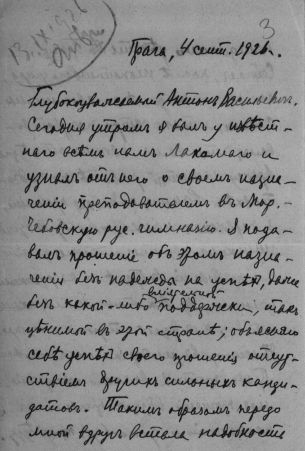 3
13.IX.1926
Прага, 4 сент. 1926.
Глубокоуважаемый Антонъ Васильевич.
Сегодня утромъ я былъ у извѣст-
наго всѣмъ намъ Лакомаго и
узналъ отъ него о своемъ назна-
ченіи преподавателемъ въ Мор.
Чебовскую рус. гимназію. Я пода-
валъ прошеніе объ этомъ назна-
ченіи безъ надежды на успѣхъ, даже
безъ какой-либо поддержки, такъ
цѣнимой въ этой странѣ; объясняю
себѣ успѣхъ своего прошенія отсут-
ствіемъ другихъ сильныхъ канди-
датовъ. Такимъ образомъ передо
мной вдругъ встала надобность